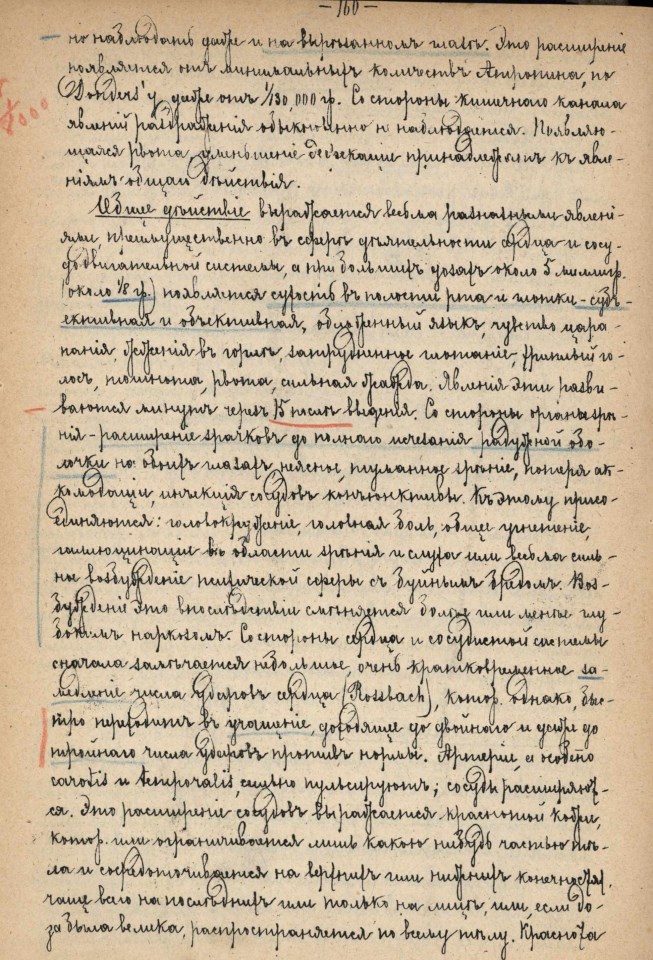 — 160 —
но наблюдать даже и на вырѣзанномъ глазѣ. Это расширеніе
появляется отъ минимальныхъ количествъ Атропина, по
Donders'у даже отъ 1/130,000 гр. Со стороны кишечнаго канала
явленій раздраженія обыкновенно не наблюдается. Появляю-
щаяся рвота, уменьшеніе дефекаціи принадлежатъ къ явле-
ніямъ общаго дѣйствія.
Общее дѣйствіе выражается весьма разнатными явлені-
ями, преимущественно въ сферѣ дѣятельности сердца и сосу-
додвигательной системы, а при большихъ дозахъ около 5 миллигр.
(около 1/8 гр.) появляется сухость въ полости рта и глотки - субъ-
ективная и объективная, обложенный языкъ, чувство цара-
панія, жженія въ горлѣ, затрудненное глотаніе, хриплый го-
лосъ, тошнота, рвота, сильная жажда. Явленія эти разви-
ваются минутъ черезъ 15 послѣ введенія. Со стороны органа зрѣ-
нія - расширеніе зрачковъ до полнаго исчезанія радужной обо-
лочки на обоихъ глазахъ, неясное, туманное зрѣніе, потеря ак-
комодаціи, инъекція сосудовъ конъюнктивы. Къ этому присо-
единяются: головокруженіе, головная боль, общее угнетеніе,
галлюцинаціи въ области зрѣнія и слуха или весьма силь-
ное возбужденіе психической сферы съ буйнымъ бредомъ. Воз-
бужденіе это впослѣдствіи смѣняется болѣе или менѣе глу-
бокимъ наркозомъ. Со стороны сердца и сосудистой системы
сначала замѣчается небольшое, очень кратковременное за-
медленіе числа ударовъ сердца (Rossbach), котор. однако, бы-
стро переходитъ въ учащеніе, доходящее до двойнаго и даже до
тройнаго числа ударовъ противъ нормы. Артеріи, а особено
carotis и temporalis, сильно пульсируютъ; сосуды расширяют-
ся. Это расширеніе сосудовъ выражается краснотой кожи,
котор. или ограничивается лишь какою нибудь частью тѣ-
ла и сосредоточивается на верхнихъ или нижнихъ конечностяхъ,
чаще всего на послѣднихъ или только на лицѣ, или, если до-
за была велика, распространяется по всему тѣлу. Краснота